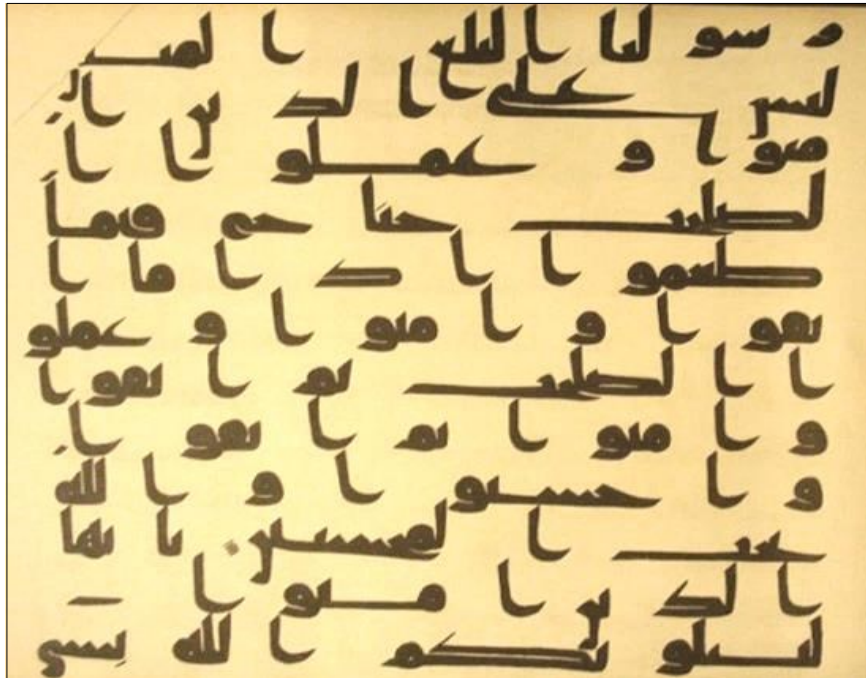 رسولنا البلغ المبين
ليس على الذين ا
منوا وعملوا ا
لصلحت جناح فيما
طعموا اذا ما ا
تقوا وامنوا وعملو
ا الصلحت ثم اتقوا
وامنوا ثم اتقوا
واحسنوا والله
يحب المحسنين يايها
الذين امنوا
ليبلونكم الله بشي